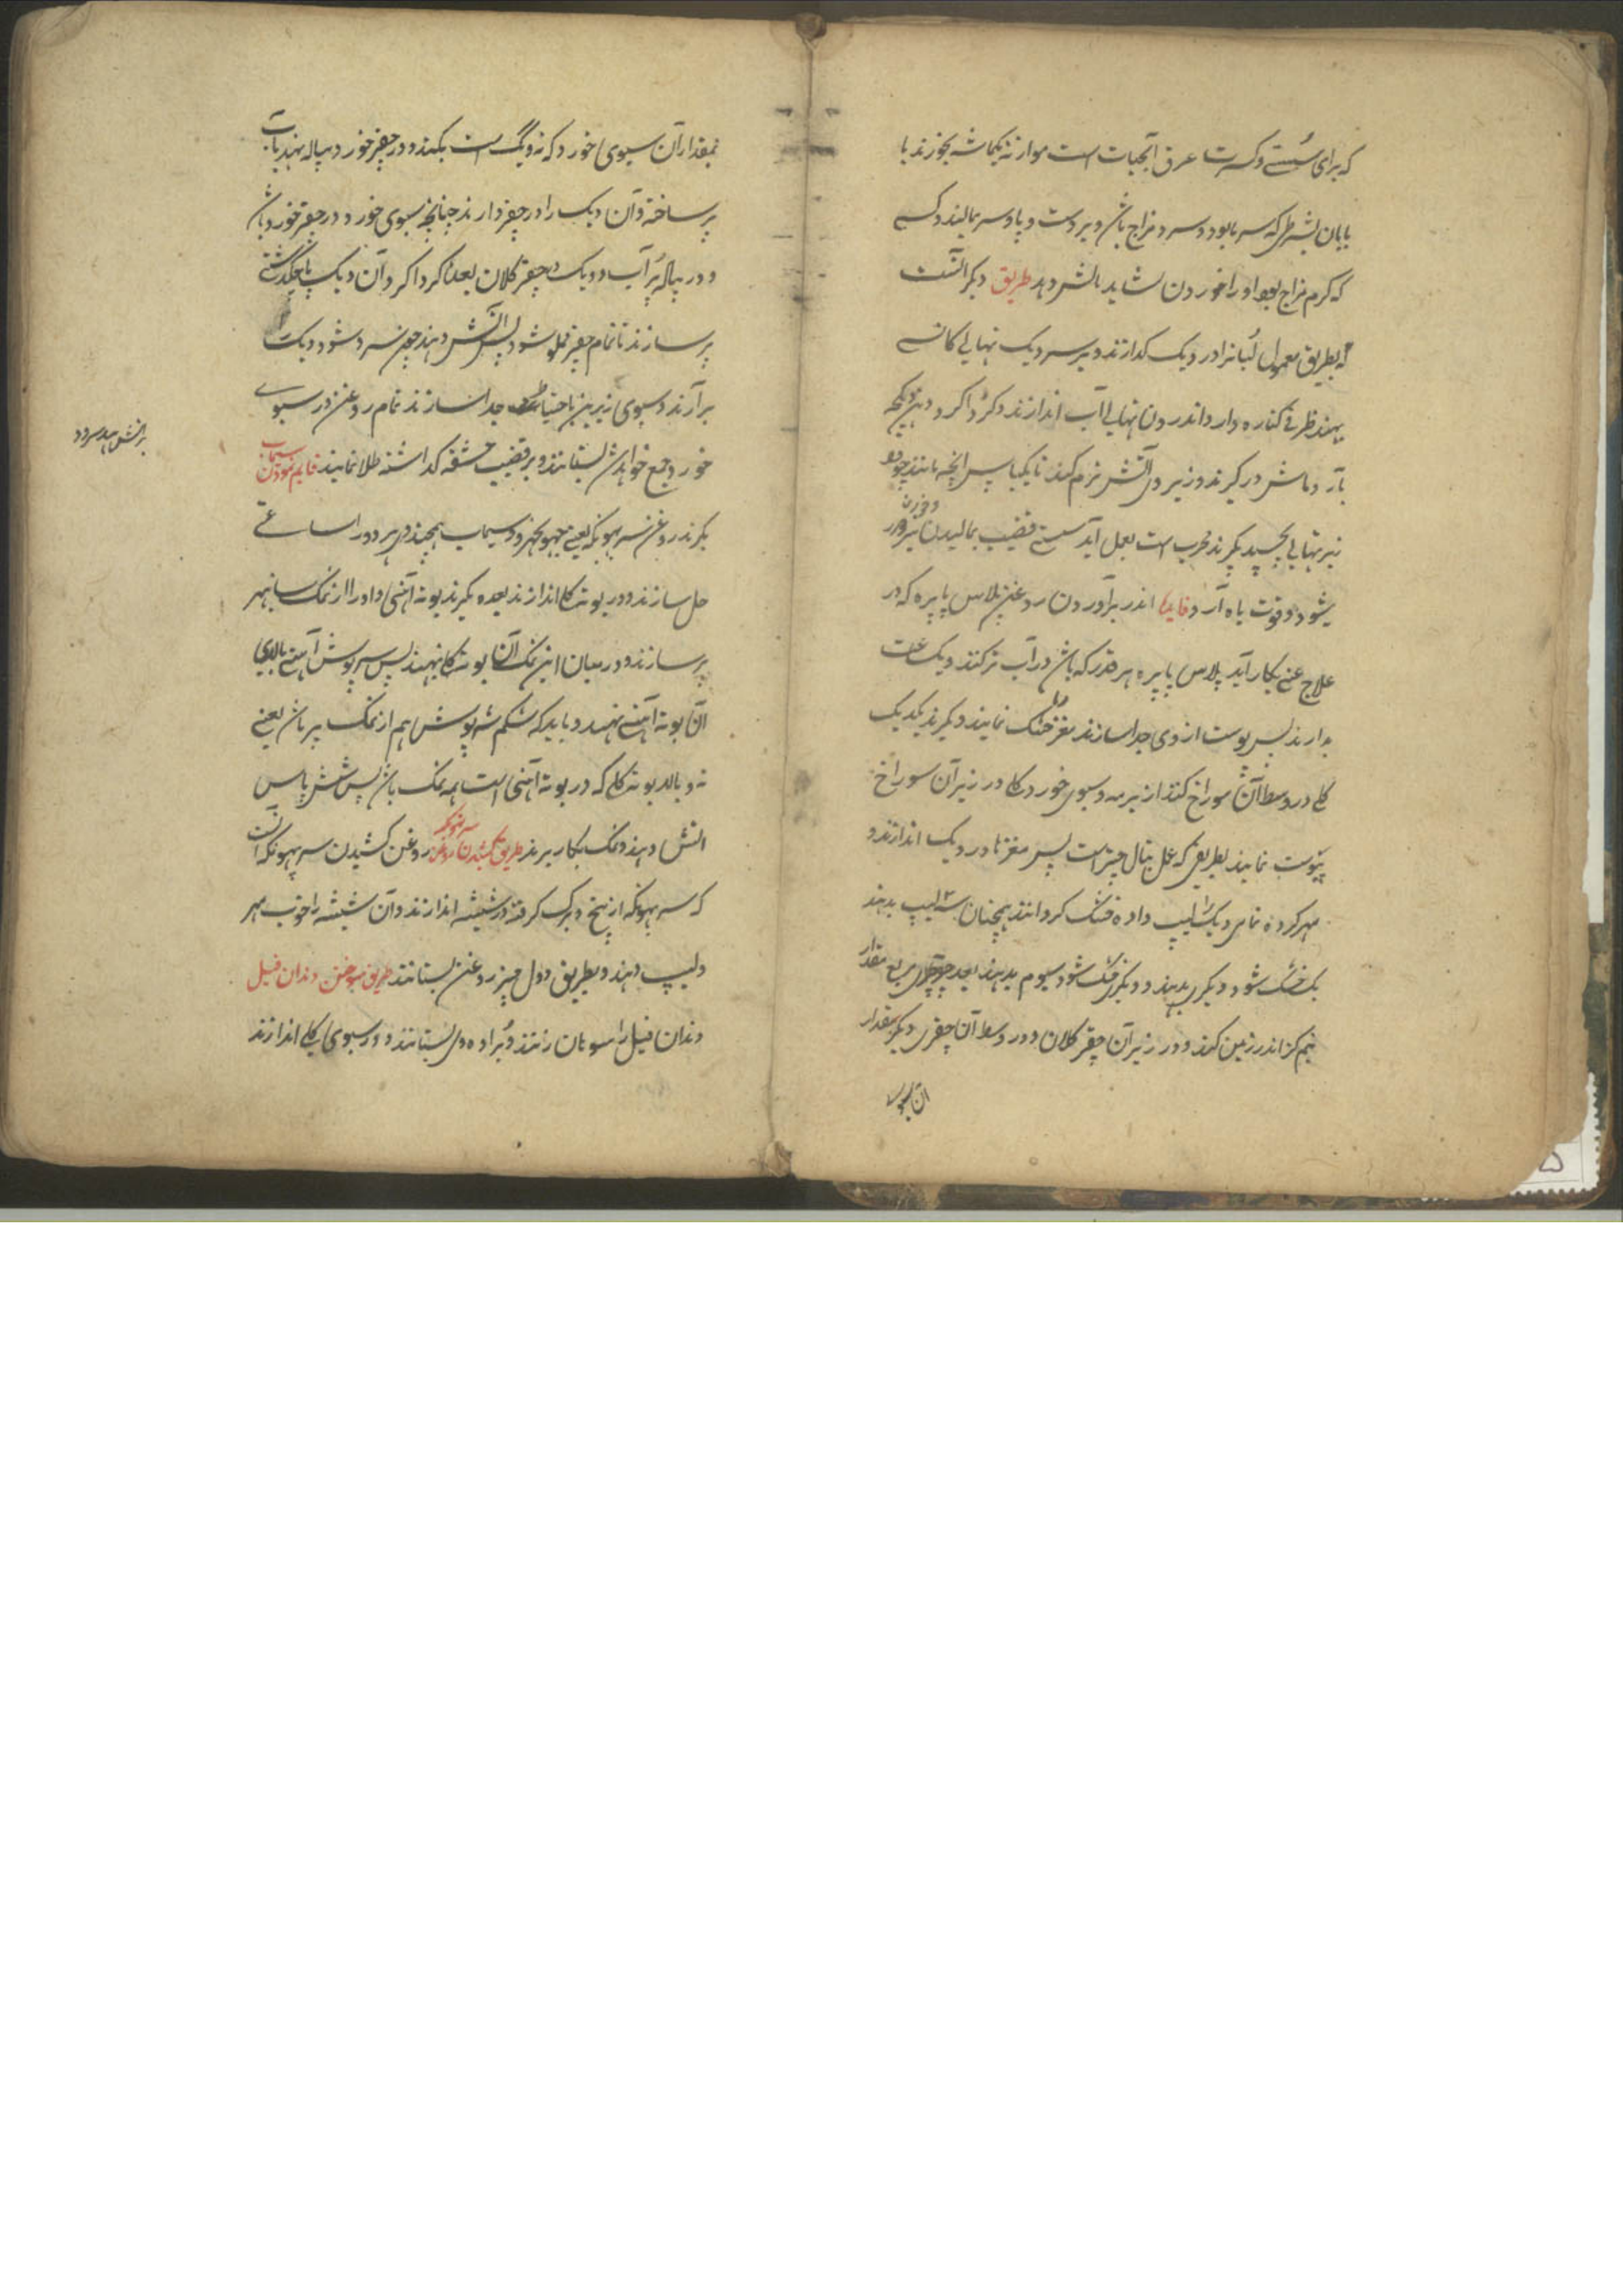 که برای سستی و کسرت عرق اتجیات است موازنه یکماشه بخورند با
پایان بشرطی که سرما بود و سرد مزاج باشد و بر دست و پا و سر بمالند و کسی
که گرم مزاج بود او را خوردن نشاید مالش دهد طریق دیگر آنست
که بطریق معمول لبانرا در دیک گذارند و بر سر دیک نهالی کانسی
بنهند ظرفی کناره دار و اندرون نهالی آب اندازند و گرداگرد دهن دیکچه
بآرد ماش در گیرند و زیر وی آتش نرم کنند تا یکپاس آنچه مانند چوه
زیر نهالی بچسپد بگیرند مجرب است بعمل آید سستی قضیب بمالیدن
میشود و قوت باه آرد فایده اندر برآوردن روغن پلاس پاپره که در
علاج عنی بکار آید پلاس پاپره هر قدر که باشد در آب تر کنند و یک ساعت
بدارند پس پوست از وی جدا سازند مغز خشک نمایند و بگیرند یک دیک
کلی در وسط آن سوراخ کنند از زیر مه و سبوی خورد کلی در زیر آن سوراخ
پیوست نمایند بطریقی که عمل پتال جنتر است پس مغز را در دیک اندازند و
مهر کرده تمامی دیک را لیپ داده خشک کردانند همچنان سه لیپ بدهند
یک خشک شود دیگری بدهند و دیگری خشک شود سیوم بدهند بعد چقری مربع مقدار
نیم گز اندر زمین کنند و در زیر آن چقر کلان و در وسط آن چقری دیگر مقدار
آن سبوی
بمقدار آن سبوی خورد که زیر دیگ است بکنند و در چقر خورد پیاله بنهند بآب
پر ساخته و آن دیک را در چقر دارند چنانچه سبوی خورد در چقر خورد باشد
و در پیاله پر آب و دیک در چقر کلان بعد گرداگرد آن دیک پاچکدشتی
پر سازند تا تمام چقر مملو شود پس آتش دهند چون سرد شود دیک
برآرند و سبوی زیرین باحتیاط جدا سازند تمام روغن در سبوی
خورد جمع خواهد شد بستانند و بر قضیب حشفه گذاشته طلا نمایند قایم نمودن سیماب
بگیرند روغن سربهونکه یعنی جهوجهرو و سیماب همچند وی هر دو را ساعتی
حل سازند و در بوته کلی اندازند بعده بگیرند بوته آهنی و او را از نمک سانبهر
پر سازند و در میان این نمک آن بوته کلی بنهند پس سرپوش آهنی بالای
آن بوته آهنی نهند و باید که شکم سرپوش هم از نمک پر باشد یعنی
ته و بالا بوته کلی که در بوته آهنی است همه نمک باشد پس شش پاس
آتش دهند و نمک بکار برند طریق کشیدن روغن سربهونکه روغن کشیدن سربهونکه آنست
که سربهونکه از بیخ و برگ گرفته در شیشه اندازند و آن شیشه را خوب مهر
و لیپ دهند و بطریق دول جنتر روغن بستانند طریق سوختن دندان فیل
دندان فیل را سوهان زنند و براده وی بستانند و در سبوی کلی اندازند